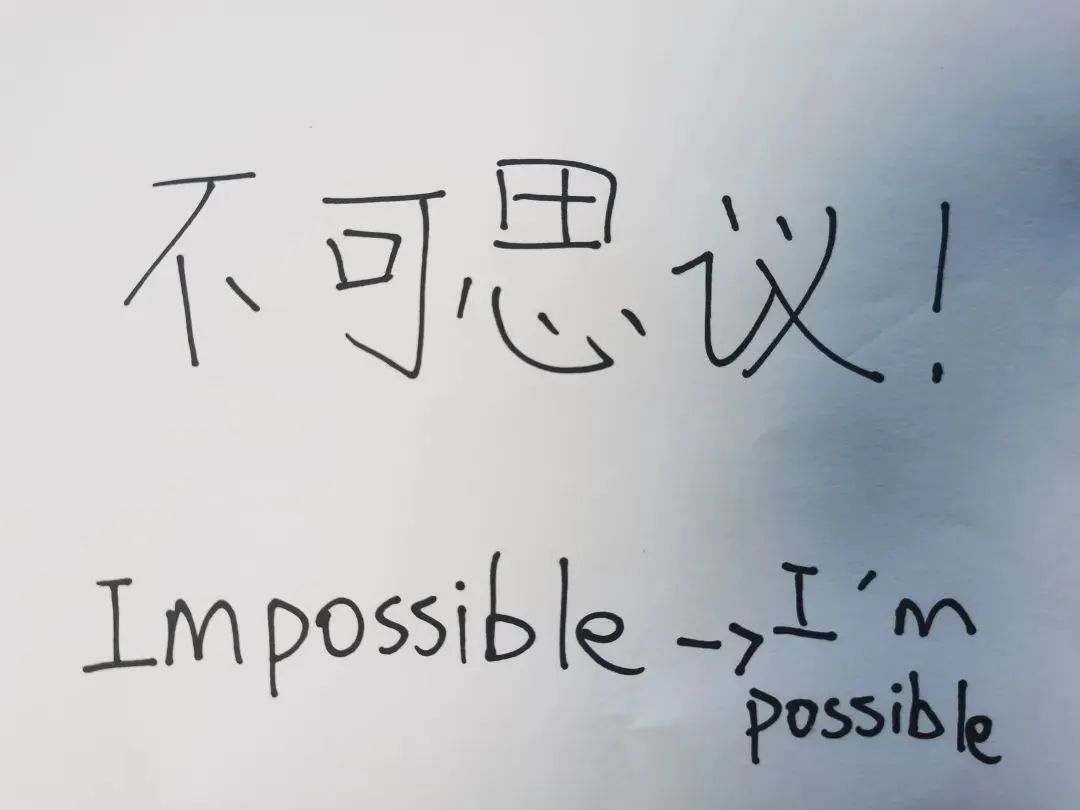 不可思议！
Impossible -> I'm
possible